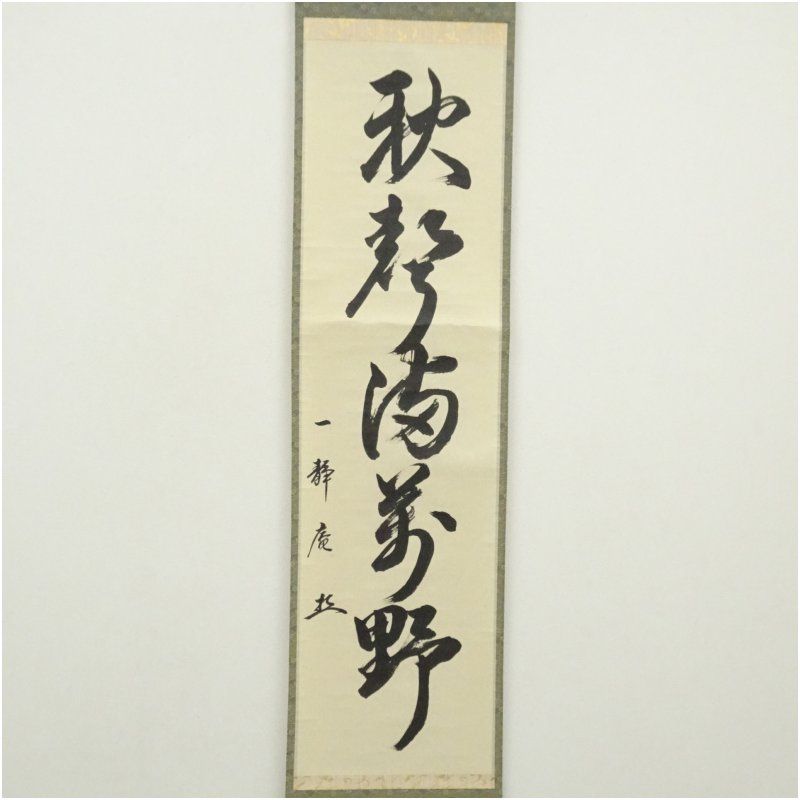 秋聲満萬野
一静庵